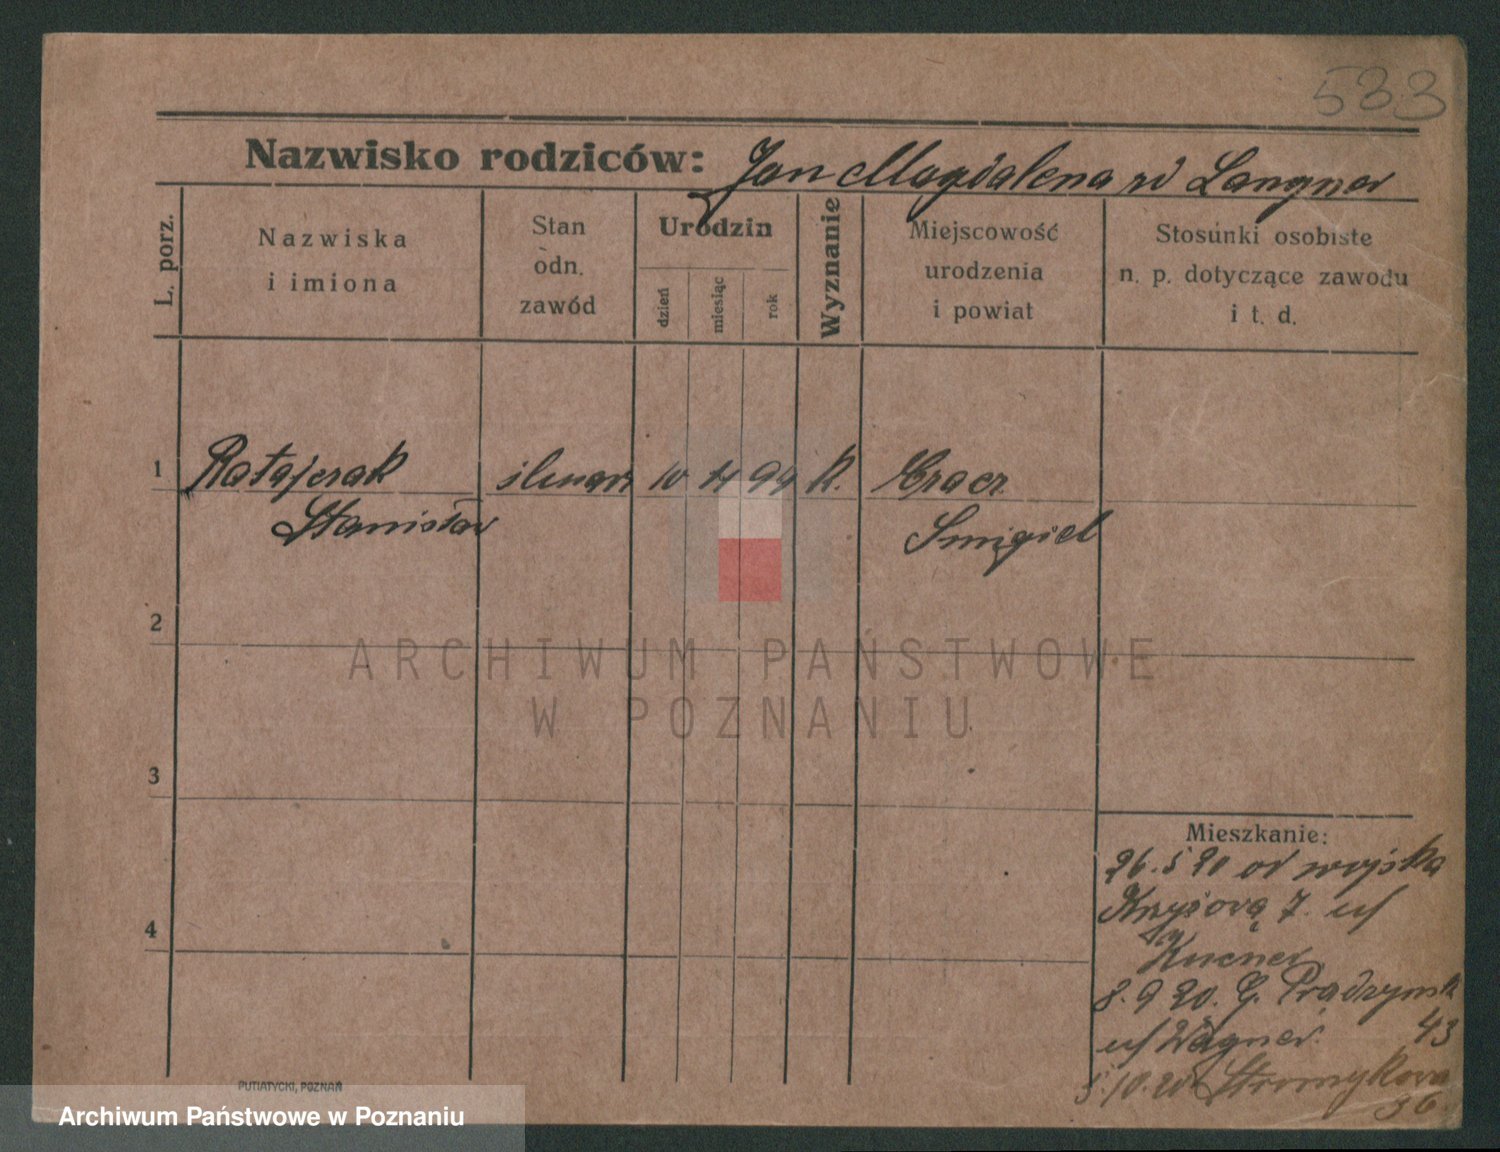 533
Nazwisko rodziców: Jan Magdalena zd Langner
L. porz.
Nazwiska
i imiona
Stan
odn.
zawód
Urodzin
dzień
miesiąc
rok
Wyznanie
Miejscowość
urodzenia
i powiat
Stosunki osobiste
n. p. dotyczące zawodu
i t. d.
1 Ratajczak ślusarz 10 4 99 K. Gracz
Stanisław Smigiel
2
ARCHIWUM PAŃSTWOWE
W POZNANIU
3
Mieszkanie:
26. 5 20 od wojska
Krzyżową 7. u/
Kucner
4
8. 9 20. G. Prądzyńsk
u/ Wagner. 43
5. 10. 20 Strumykowa
36
PUTIATYCKI, POZNAŃ
Archiwum Państwowe w Poznaniu